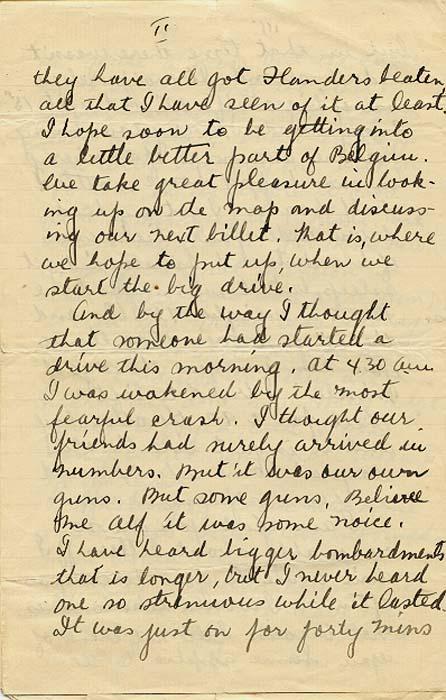 II
they have all got Flanders beaten,
all that I have seen of it at least.
I hope soon to be getting into
a little better part of Belgium.
We take great pleasure in look-
ing up on the map and discuss-
ing our next billet. That is, where
we hope to put up, when we
start the big drive.
And by the way I thought
that someone had started a
drive this morning. At 4.30 am
I was wakened by the most
fearful crash. I thought our
friends had surely arrived in
numbers. But it was our own
guns. But some guns, Believe
me Alf it was some noice.
I have heard bigger bombardments
that is longer, but I never heard
one so strenuous while it lasted.
It was just on for forty mins